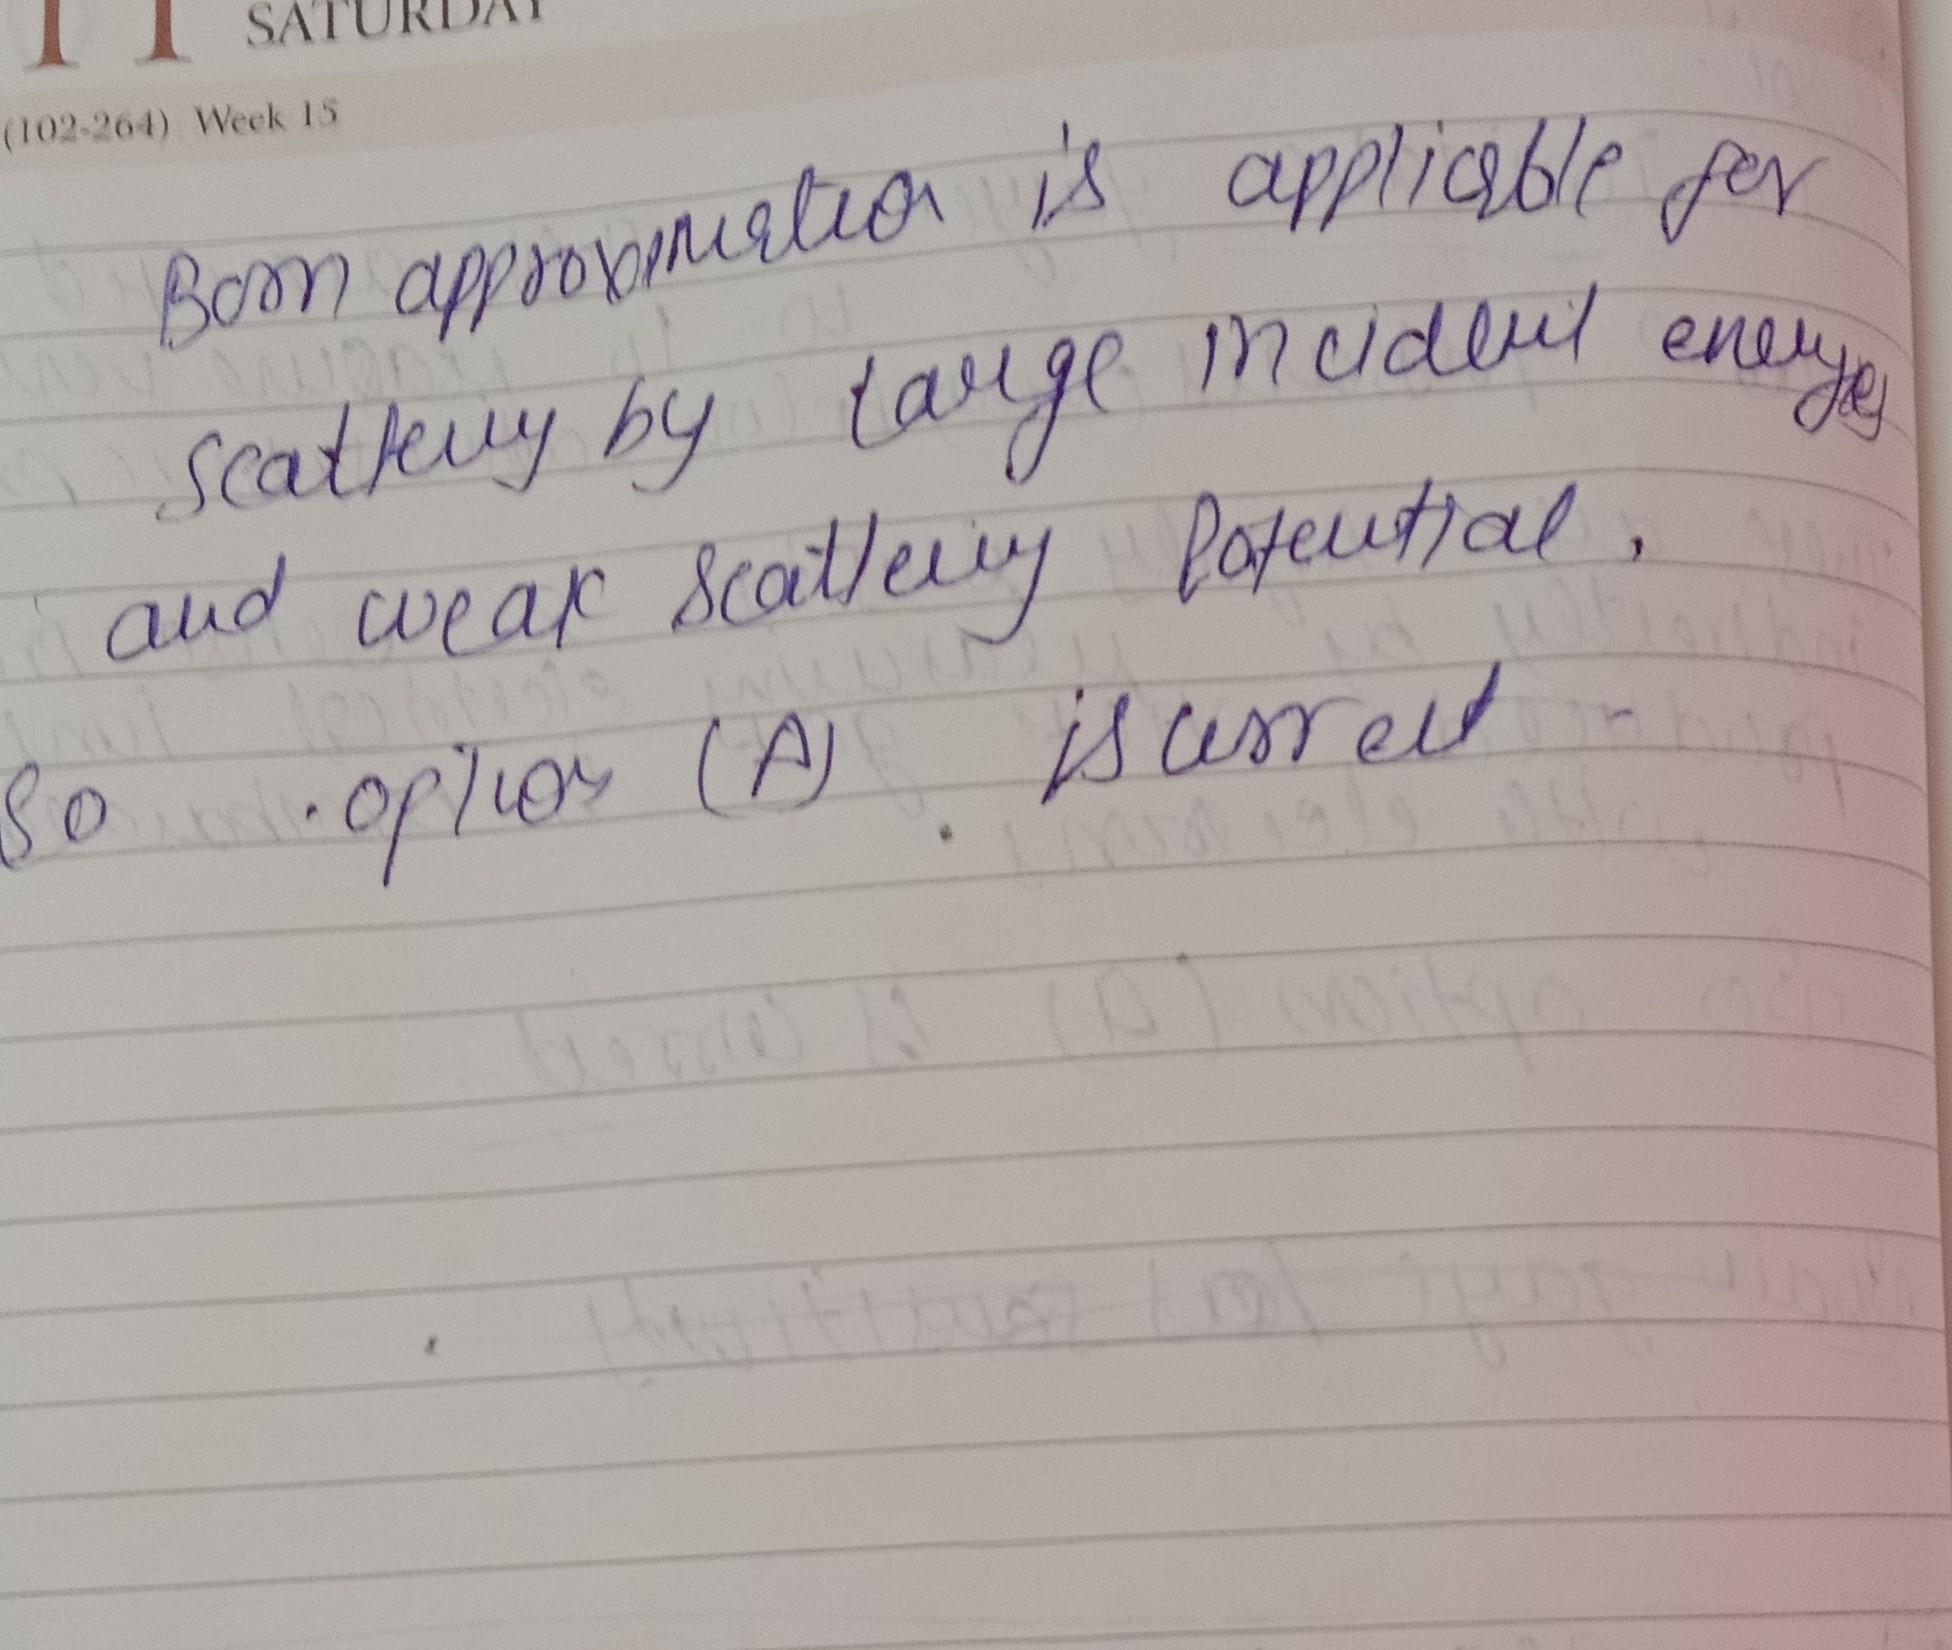 11 SATURDAY
(102-264) Week 15
Born approximation is applicable for
scattering by Large incident energy
and weak scattering Potential.
So option (A) is correct